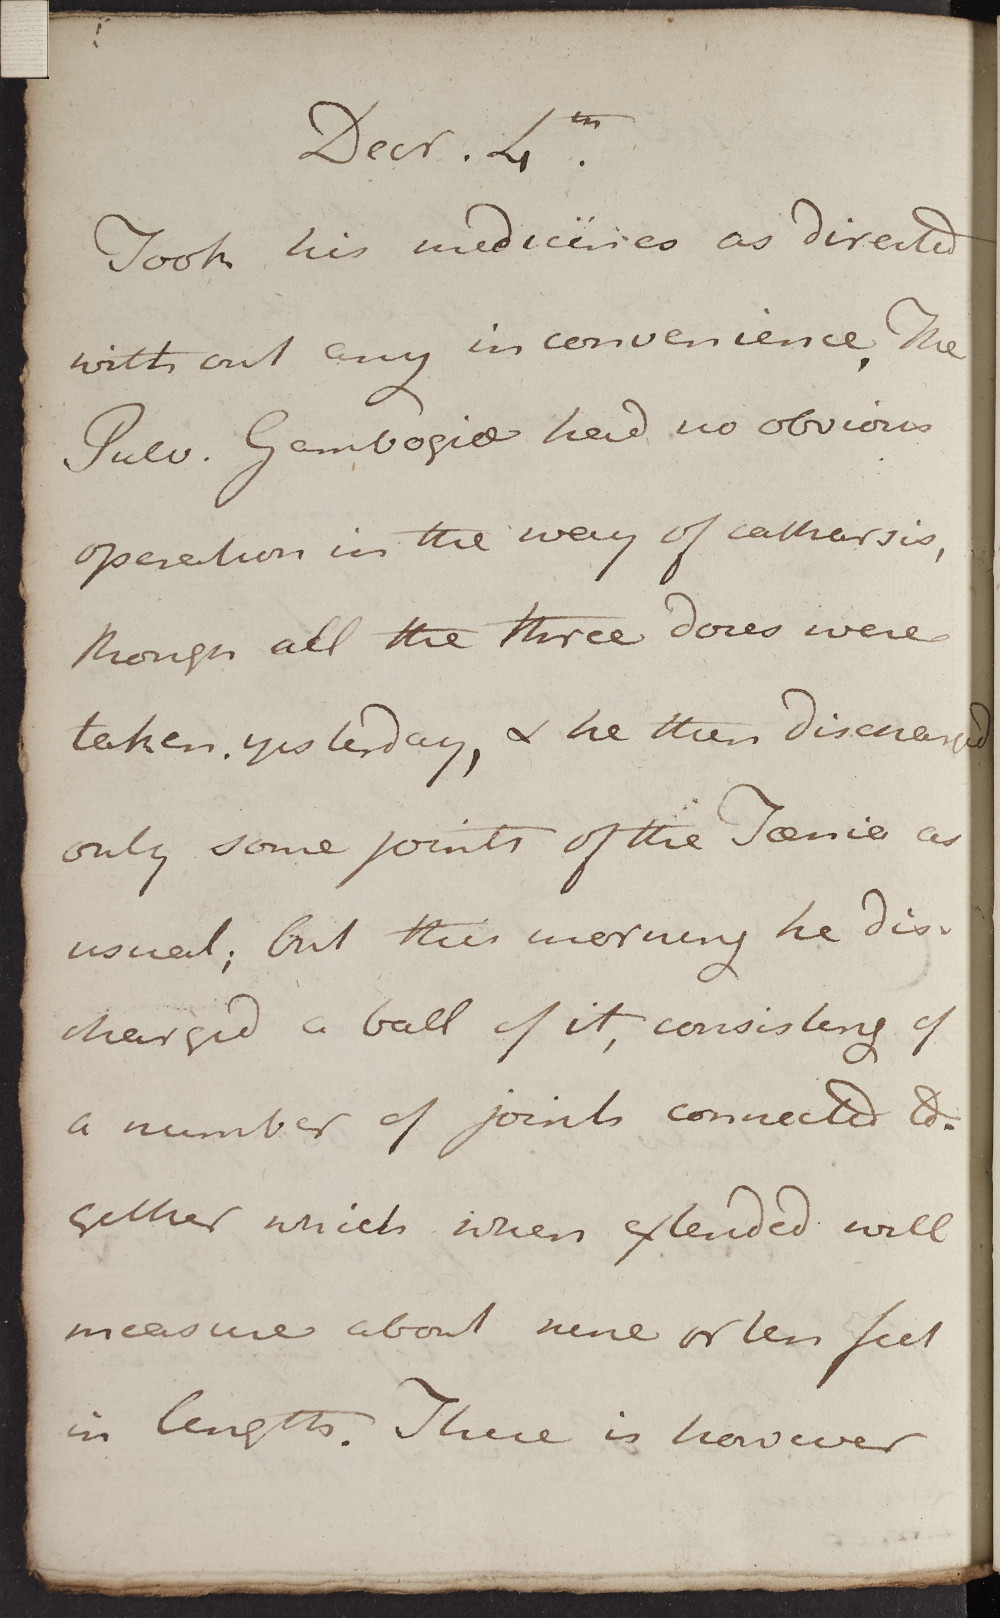 Decr. 4th.
Took his medicines as directed
without any inconvenience, The
Pulv. Gambogiæ had no obvious
operation in the way of catharsis,
though all the three doses were
taken yesterday, & he then discharged
only some joints of the Tænia as
usual; but this morning he dis-
charged a ball of it, consisting of
a number of joints connected to-
gether which when extended will
measure about nine or ten feet
in length. There is however